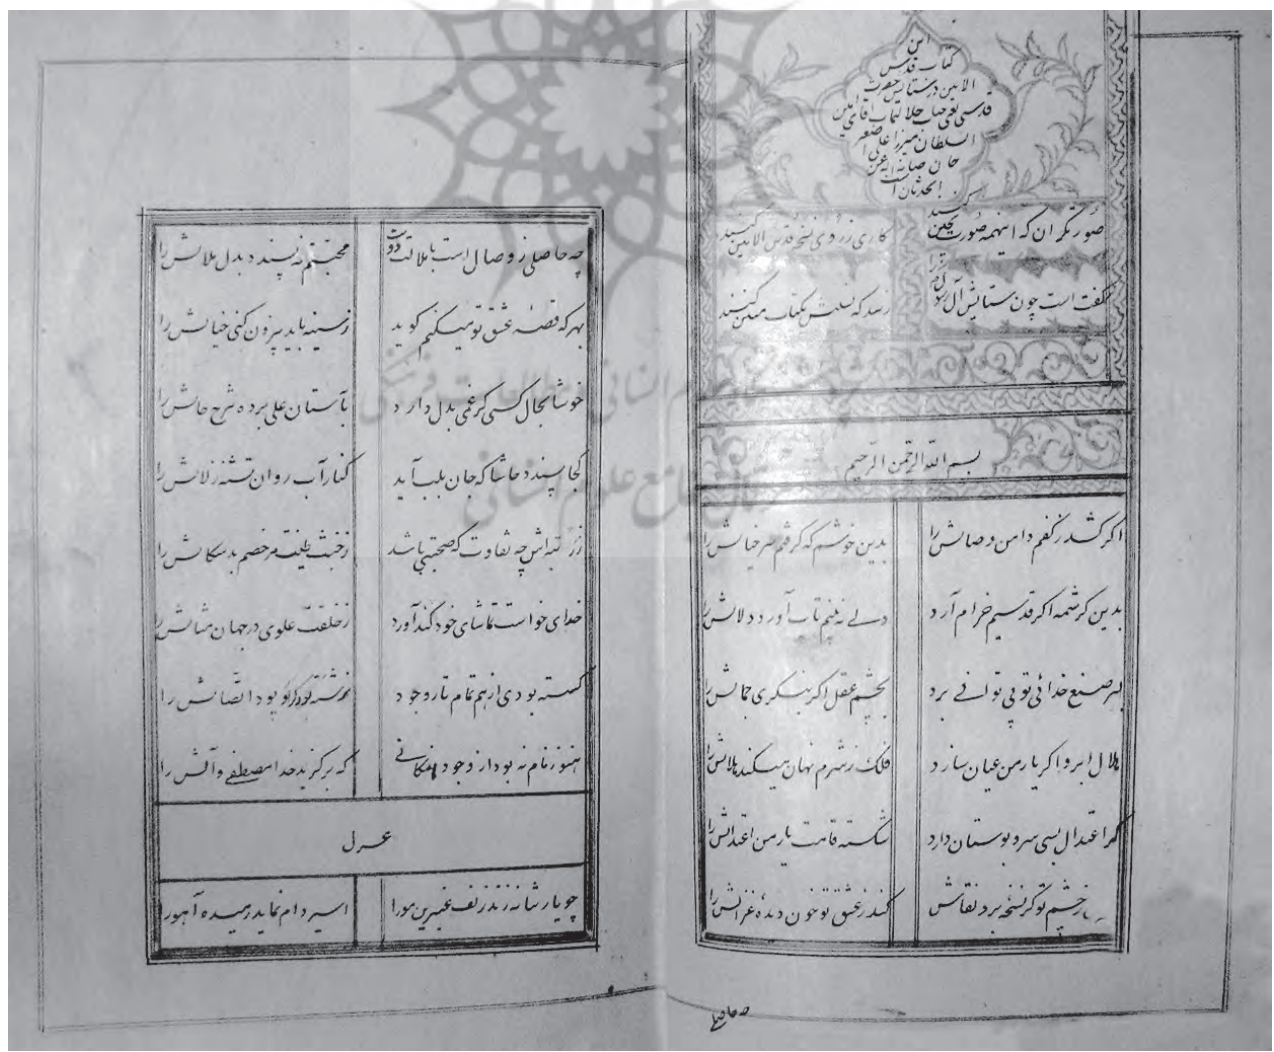 این
کتاب قدس
الامین در ستایش حضرت
قدسی یعنی جناب جلالتمآب آقای امین
السلطان میرزا علی اصغر
خان صانه الله عن
الحدثان است
صورتگران که اینهمه صورتگری کنند کاری ز روی نسخه قدس الامین کنند
گفت است چون ستایش آل رسول را
بسم الله الرحمن الرحیم
اگر کشد ز کفم دامن وصالش را بدین خوشم که گرفتم سر خیالش را
بدین کرشمه اگر قدسیم خرام آرد دلی نه بینم تاب آورد دلالش را
پی صنع خدائی تو پی توانی برد بچشم عقل اگر بنگری جمالش را
هلال ابرو اگر یار من عیان سازد فلک ز شرم نهان میکند هلالش را
گر اعتدال بسی سرو بوستان دارد شکسته قامت یار من اعتدالش را
ز چشم تو گر نسخه برد نقاش کند ز عشق تو خون دیده غزالش را
چه حاصلی
چه حاصلی ز وصال است با ملالت دوست محبتم نپسندد بدل ملالش را
بهر که قصه عشق تو میکنم گوید ز سینه باید بیرون کنی خیالش را
خوشا بحال کسی کز غمی بدل دارد بآستان علی برده شرح حالش را
کجا پسندد حاشا که جان بلب آید کنار آب روان تشنه زلالش را
ز رتبه اش چه تفاوت که صحبتی باشد ز خبث طینت مر خصم بدسگالش را
خدای خواست تماشای خود کند آورد ز خلقت علوی در جهان مثالش را
گسسته بودی از هم تمام تار وجود بود اتصالش را
هنوز نام نه بود از وجود امکانی که برگزید خدا مصطفی و آلش را
غزل
چو یار شانه زند زلف عنبرین مو را اسیر دام نماید رمیده آهو را